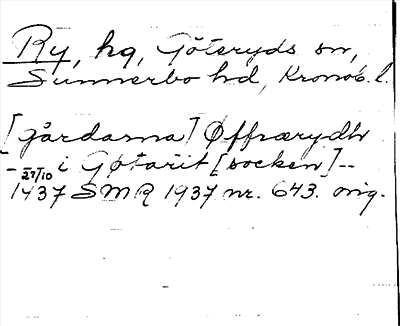 Ry, hg, Göteryds sn,
Sunnerbo hd, Kronob. l.
[gårdarna] Øffrærydh
i Gøtarit [socken] --
27/10 1437 SMR 1937 nr. 643. orig.